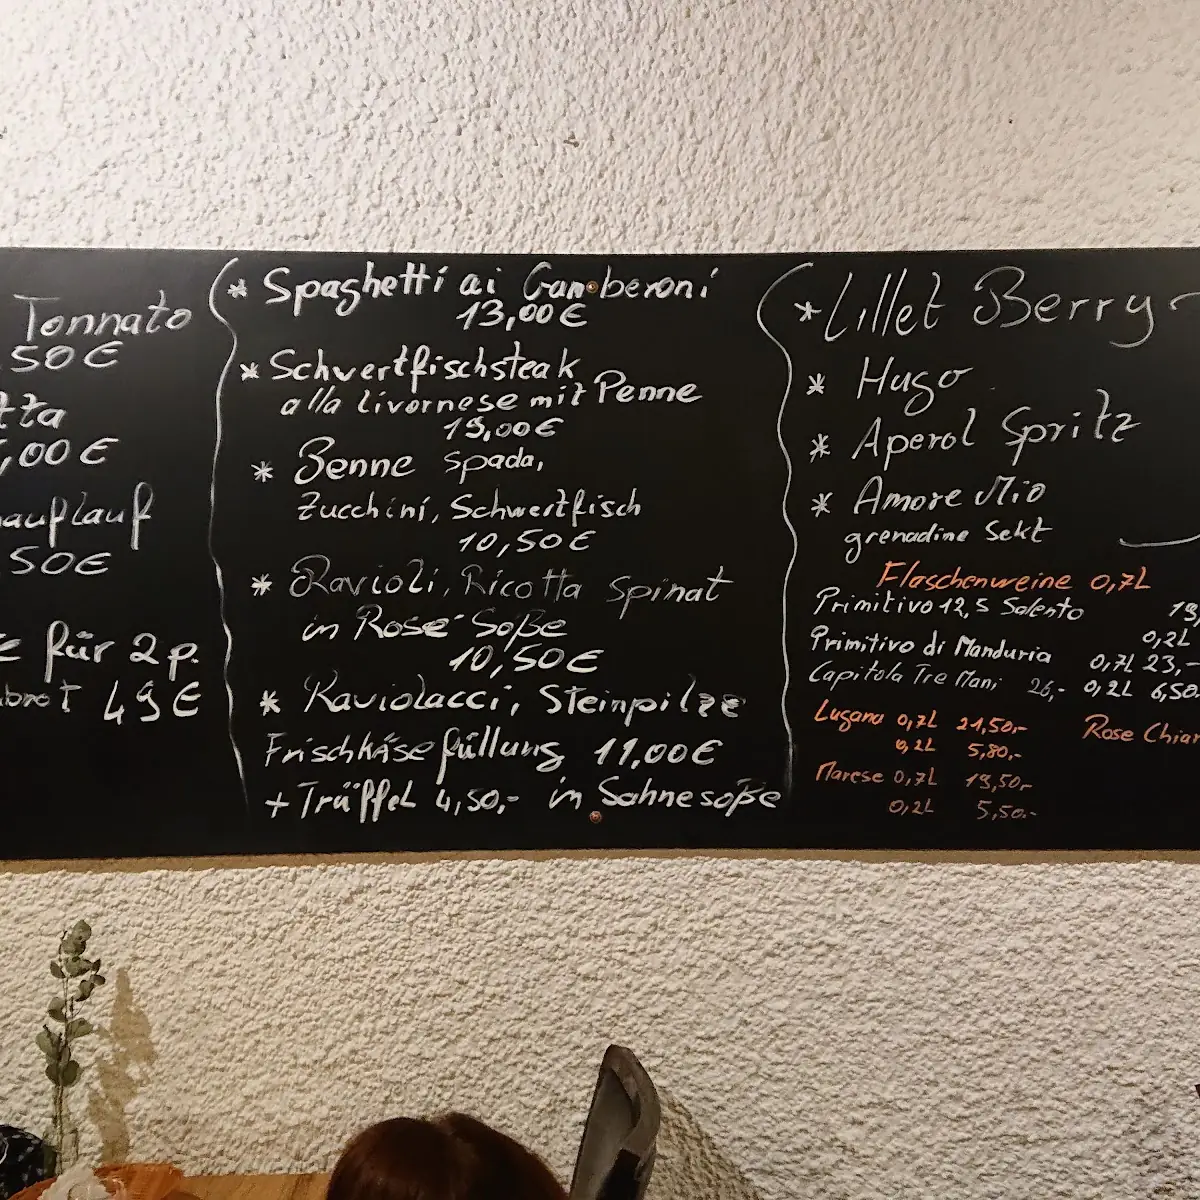 Tonnato
50€
tta
,00€
auflauf
50€
für 2 p.
brot 49€
* Spaghetti ai Gamberoni
13,00€
* Schwertfischsteak
alla Livornese mit Penne
19,00€
* Penne Spada,
Zucchini, Schwertfisch
10,50€
* Ravioli, Ricotta Spinat
in Rosé Soße
10,50€
* Raviolacci, Steinpilze
Frischkäsefüllung 11,00€
+ Trüffel 4,50,- in Sahnesoße
* Lillet Berry
* Hugo
* Aperol Spritz
* Amore Mio
grenadine Sekt
Flaschenweine 0,7L
Primitivo 12,5 Salento 19,
0,2L
Primitivo di Manduria 0,7L 23,-
Capitola Tre Mani 26,- 0,2L 6,50
Lugana 0,7L 21,50,-
0,2L 5,80,-
Rose Chiar
Marese 0,7L 19,50,-
0,2L 5,50,-